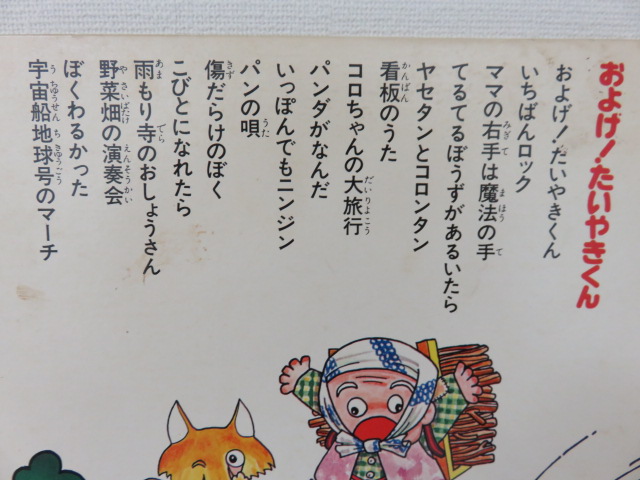 およげ!たいやきくん
およげ!たいやきくん
いちばんロック
ママの右手は魔法の手
てるてるぼうずがあるいたら
ヤセタンとコロンタン
看板のうた
コロちゃんの大旅行
パンダがなんだ
いっぽんでもニンジン
パンの唄
傷だらけのぼく
こびとになれたら
雨もり寺のおしょうさん
野菜畑の演奏会
ぼくわるかった
宇宙船地球号のマーチ